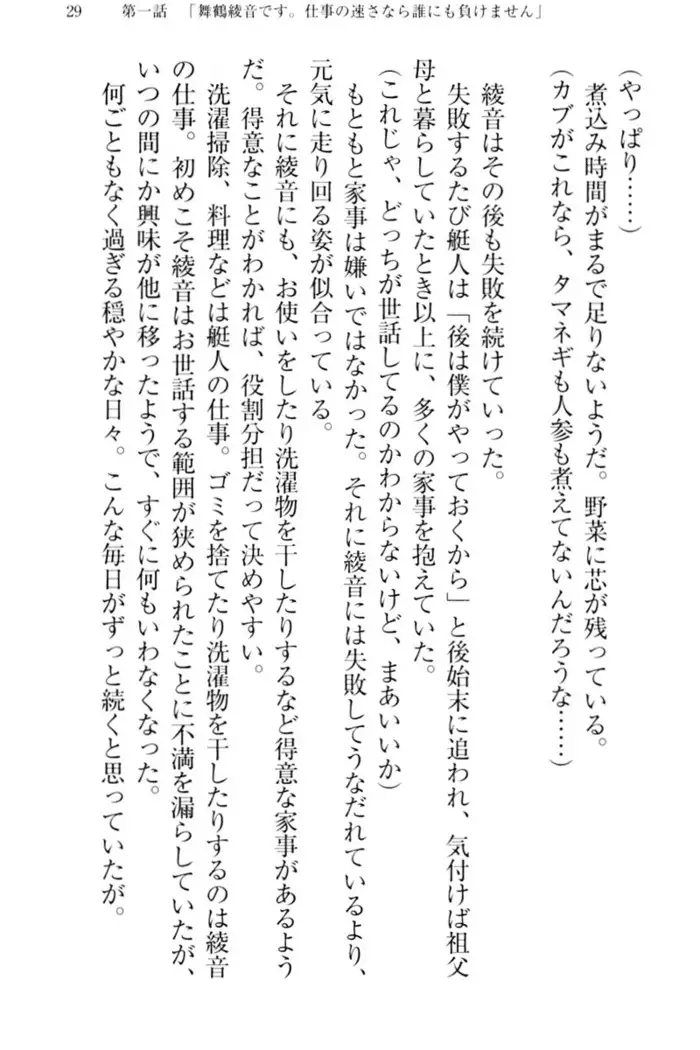 29　第一話　「舞鶴綾音です。仕事の速さなら誰にも負けません」
（やっぱり……）
煮込み時間がまるで足りないようだ。野菜に芯が残っている。
（カブがこれなら、タマネギも人参も煮えてないんだろうな……）
綾音はその後も失敗を続けていった。
失敗するたび艇人は「後は僕がやっておくから」と後始末に追われ、気付けば祖父
母と暮らしていたとき以上に、多くの家事を抱えていた。
（これじゃ、どっちが世話してるのかわからないけど、まあいいか）
もともと家事は嫌いではなかった。それに綾音には失敗してうなだれているより、
元気に走り回る姿が似合っている。
それに綾音にも、お使いをしたり洗濯物を干したりするなど得意な家事があるよう
だ。得意なことがわかれば、役割分担だって決めやすい。
洗濯掃除、料理などは艇人の仕事。ゴミを捨てたり洗濯物を干したりするのは綾音
の仕事。初めこそ綾音はお世話する範囲が狭められたことに不満を漏らしていたが、
いつの間にか興味が他に移ったようで、すぐに何もいわなくなった。
何ごともなく過ぎる穏やかな日々。こんな毎日がずっと続くと思っていたが。